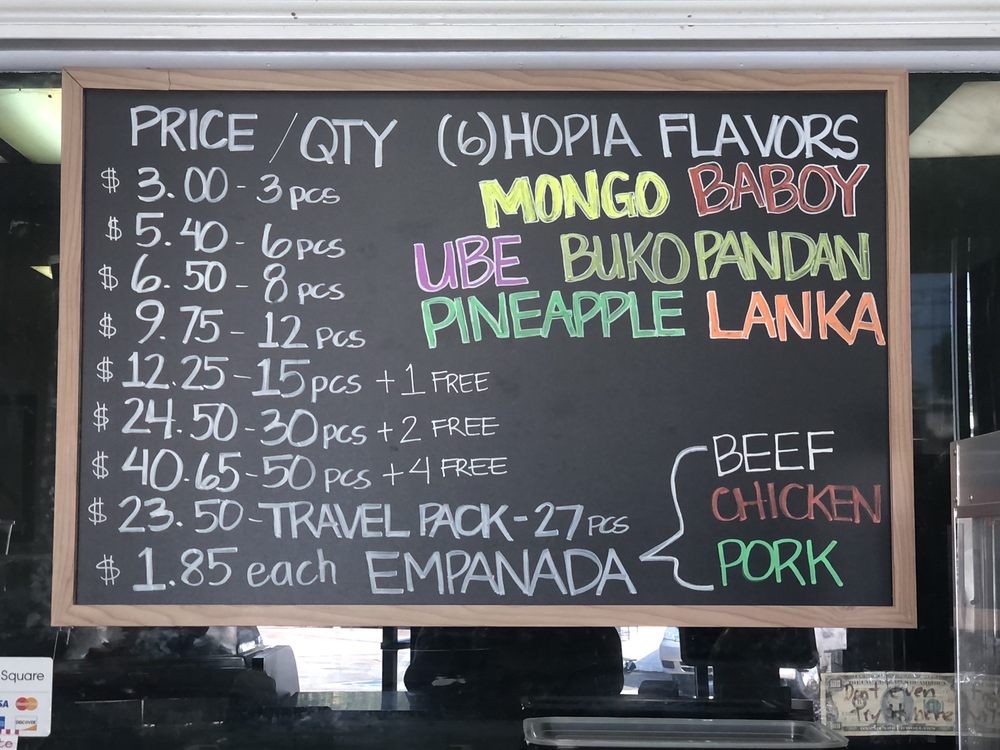 PRICE / QTY
$ 3.00 - 3 pcs
$ 5.40 - 6 pcs
$ 6.50 - 8 pcs
$ 9.75 - 12 pcs
$ 12.25 - 15 pcs + 1 FREE
$ 24.50 - 30 pcs + 2 FREE
$ 40.65 - 50 pcs + 4 FREE
$ 23.50 - TRAVEL PACK - 27 pcs
$ 1.85 each EMPANADA
(6) HOPIA FLAVORS
MONGO BABOY
UBE BUKO PANDAN
PINEAPPLE LANKA
BEEF
CHICKEN
PORK
Square
DISCOVER
Don't even
Try it here